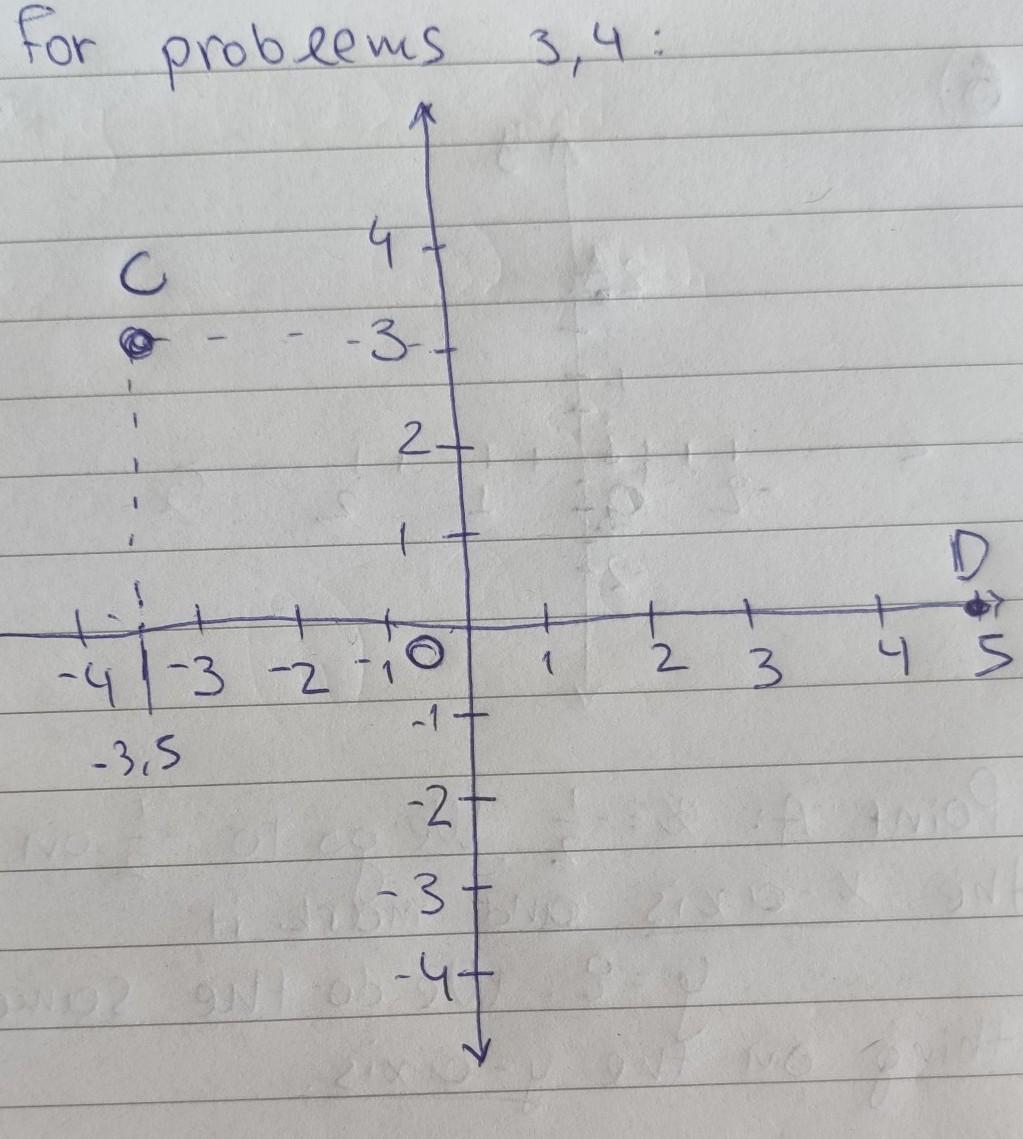 For problems 3,4:
4
C
3
2
1
D
-4 -3 -2 -1 0 1 2 3 4 5
-1
-3,5
-2
-3
-4